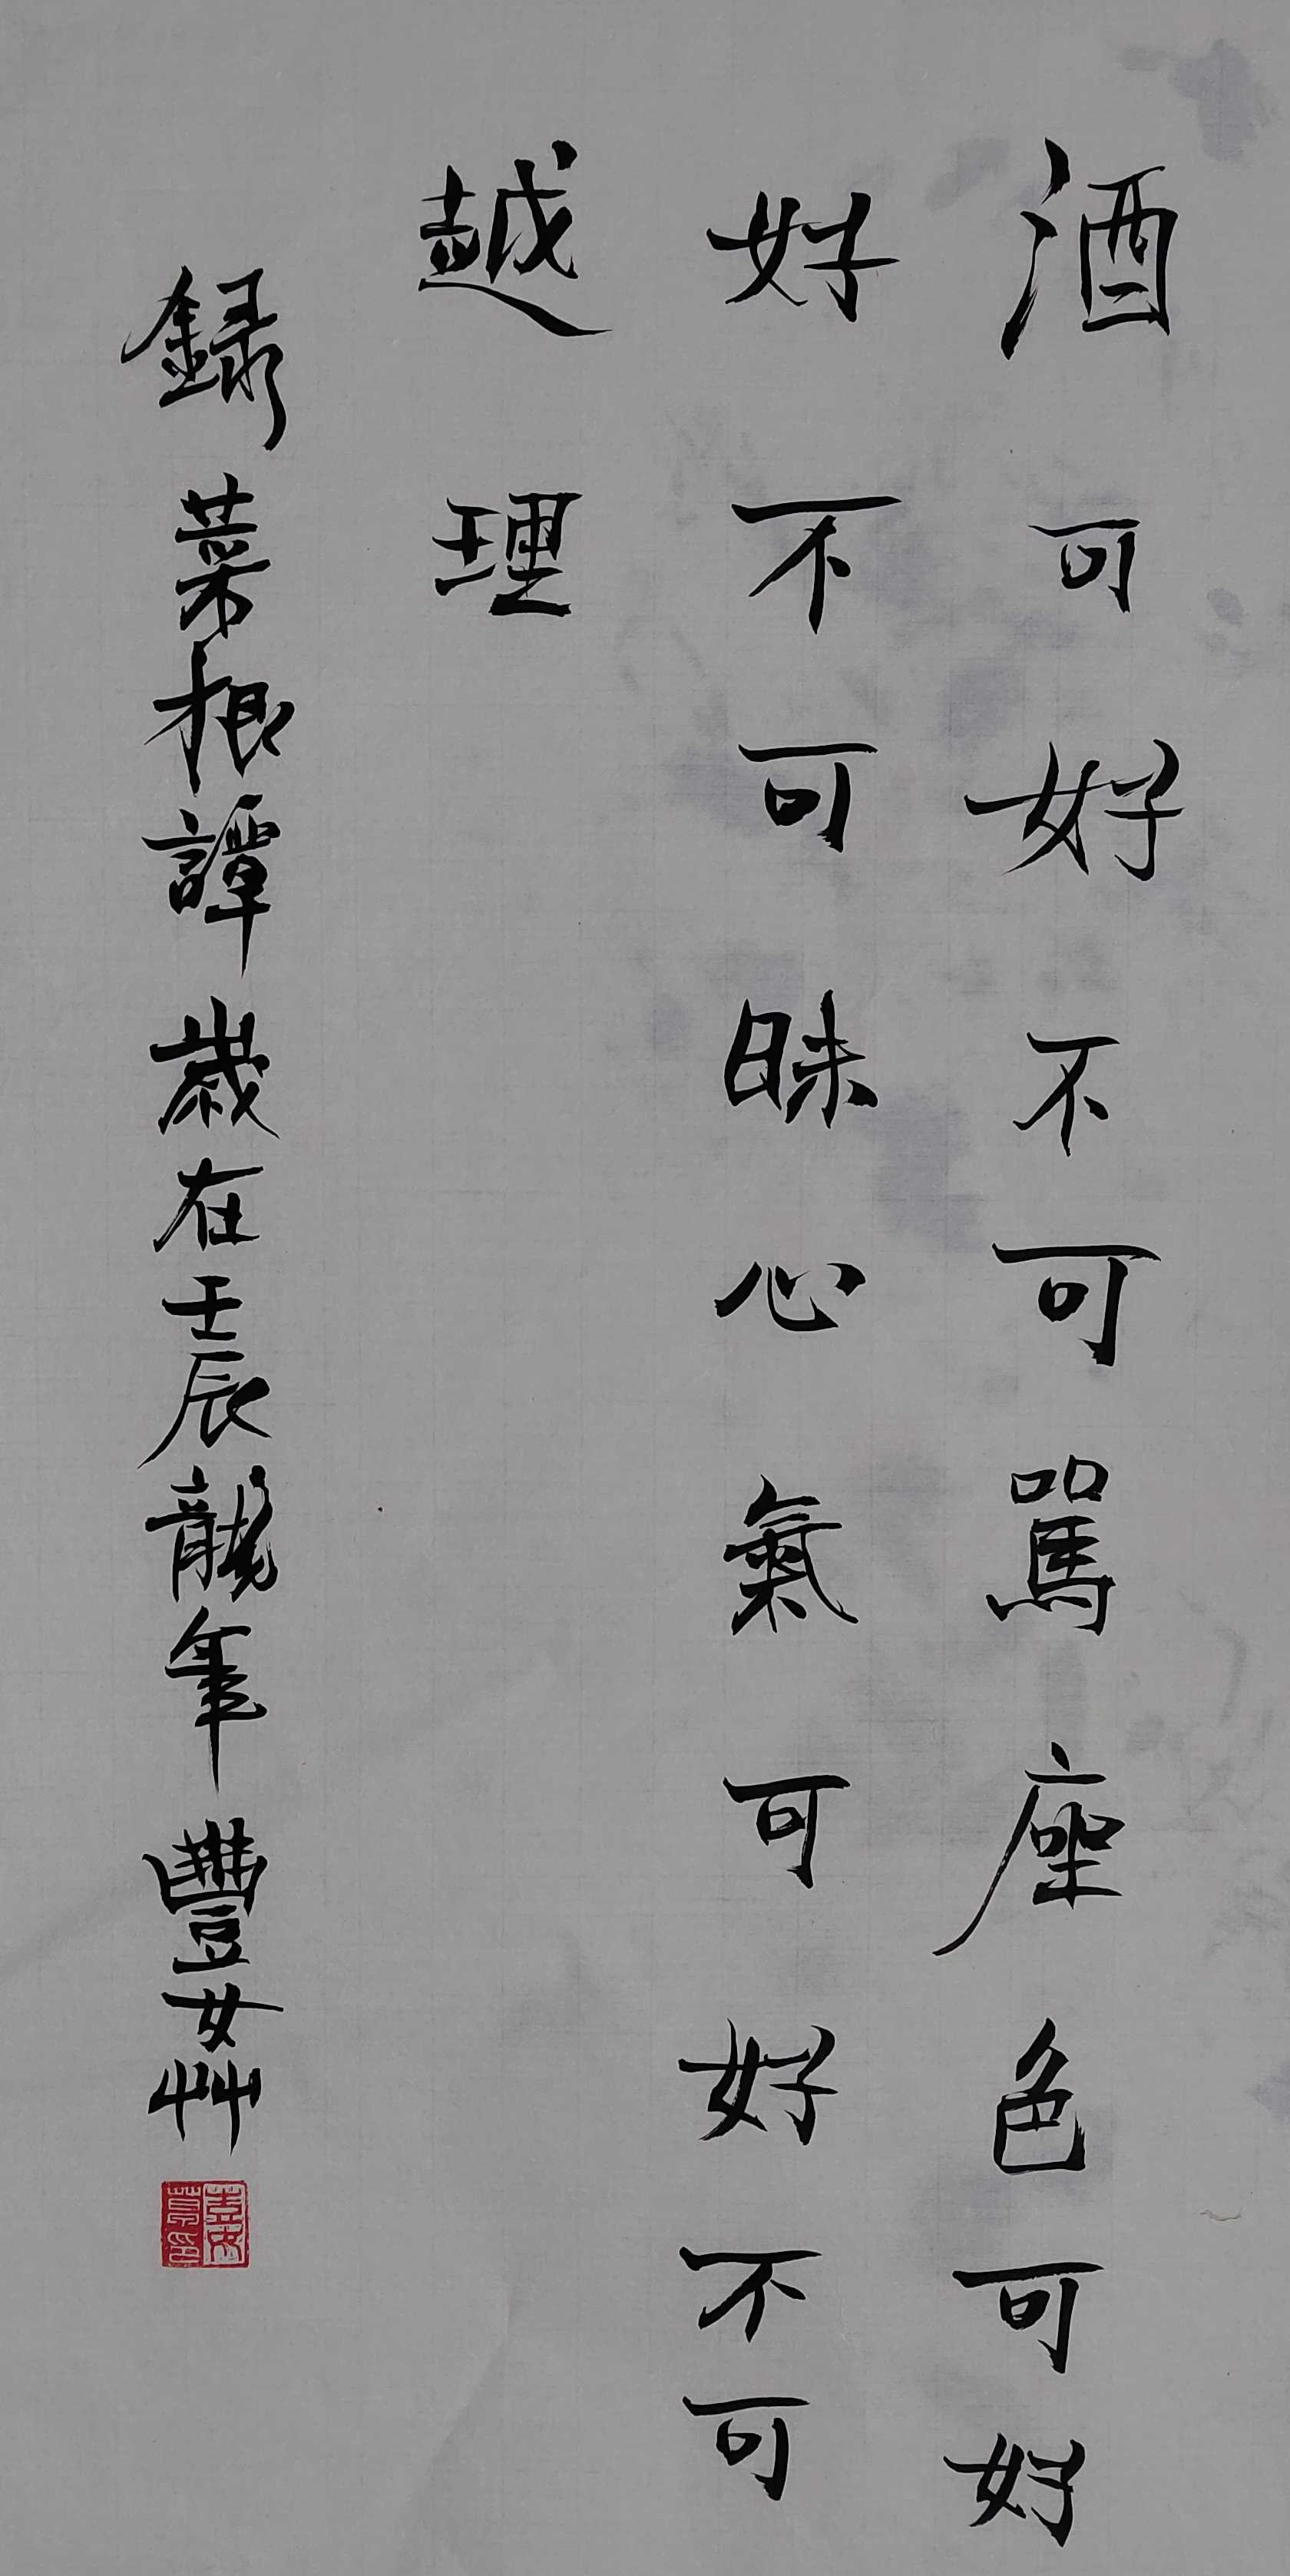 酒可好不可罵座色可好
好不可昧心氣可好不可
越理
録菜根譚歲在壬辰龍年豐女艸